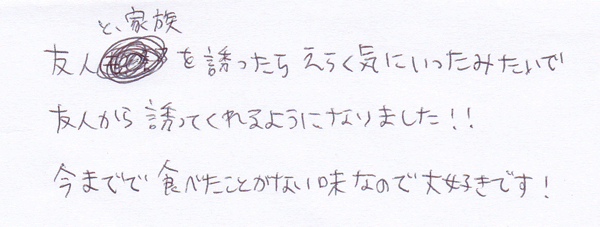 と、家族
友人を誘ったらえらく気にいったみたいで
友人から誘ってくれるようになりました!!
今までで食べたことがない味なので大好きです!